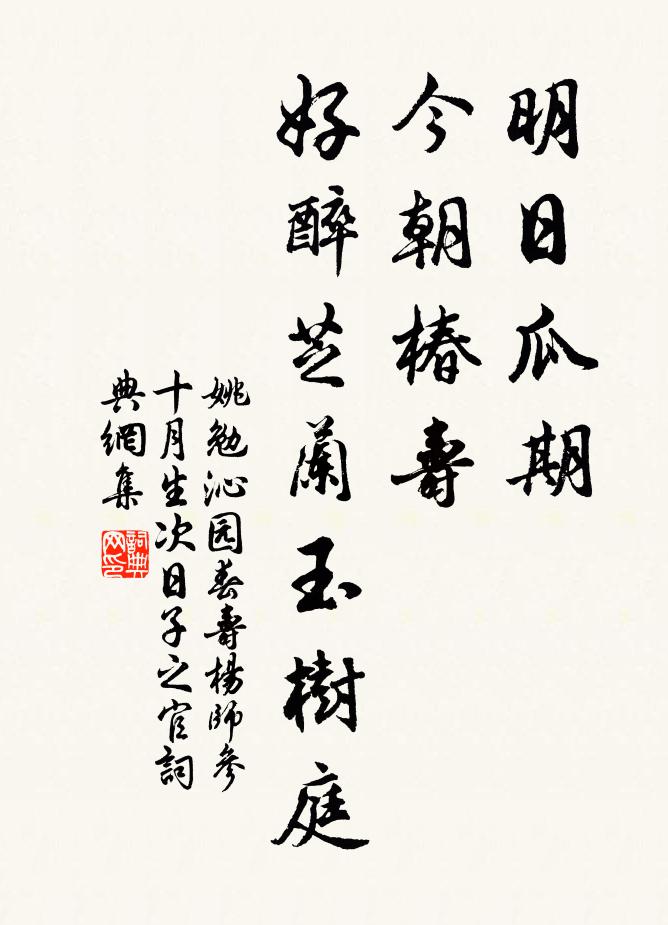 明日瓜期
今朝椿壽
好醉芝蘭玉樹庭
姚勉沁园春壽楊師參
十月生次日子之官詞
典網集
詞典网印